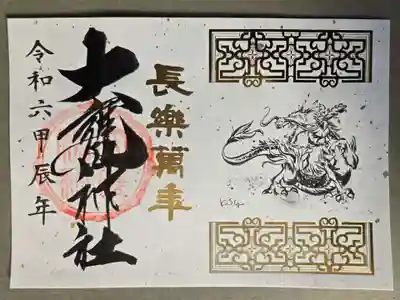 長樂萬年
大龍神社
令和六甲辰年